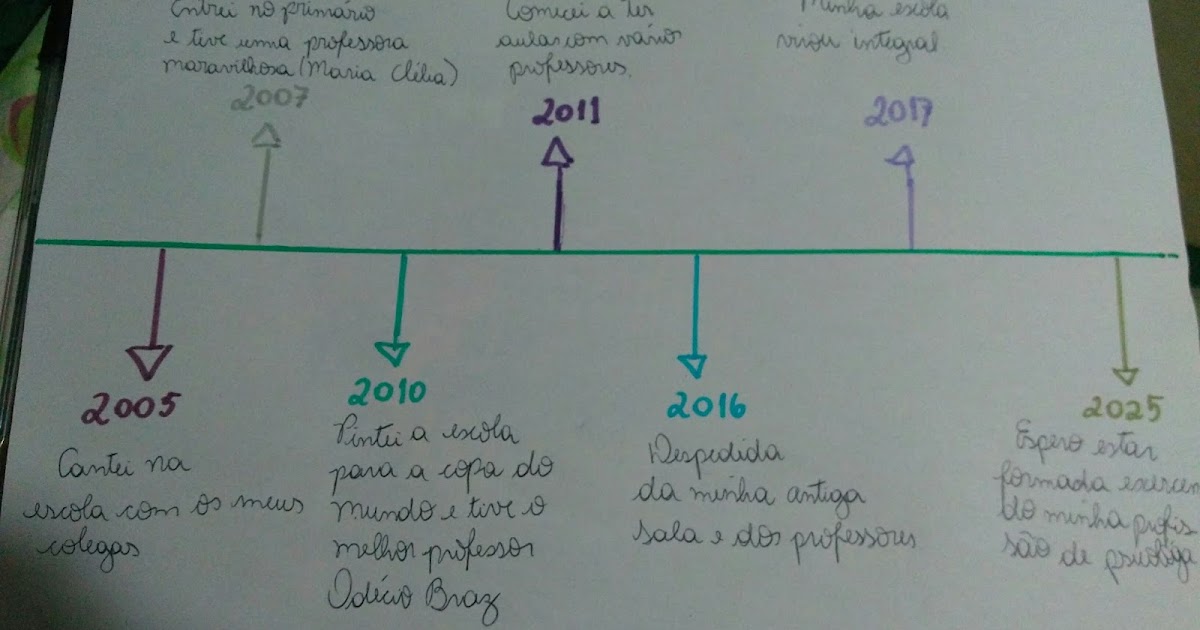 Entrei no primário
e tive uma professora
maravilhosa (Maria Clélia)
2007
Comecei a ter
aulas com vários
professores.
2011
Minha escola
virou integral
2017
2005
Cantei na
escola com os meus
colegas
2010
Pintei a escola
para a copa do
mundo e tive o
melhor professor
Odécio Braz
2016
Despedida
da minha antiga
sala e dos professores
2025
Espero estar
formada exercen
do minha profis
são de psicóloga